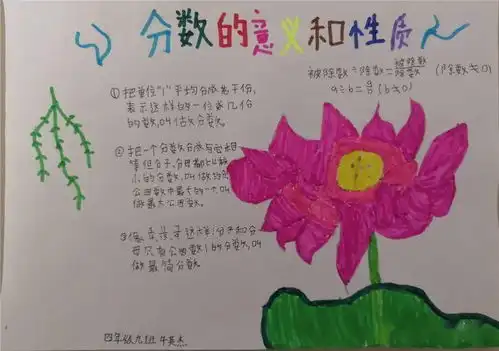 分数的意义和性质
被除数÷除数=被除数/除数 (除数≠0)
a÷b=a/b (b≠0)
①把单位"1"平均分成若干份,
表示这样的一份或几份
的数,叫做分数。
②把一个分数分成与它相
等但分子,分母都比较
小的分数,叫做约分
公因数中最大的一个叫
做最大公因数。
这样,分子和分
母只有公因数1的分数,叫
做最简分数
四年级九班 牛英杰